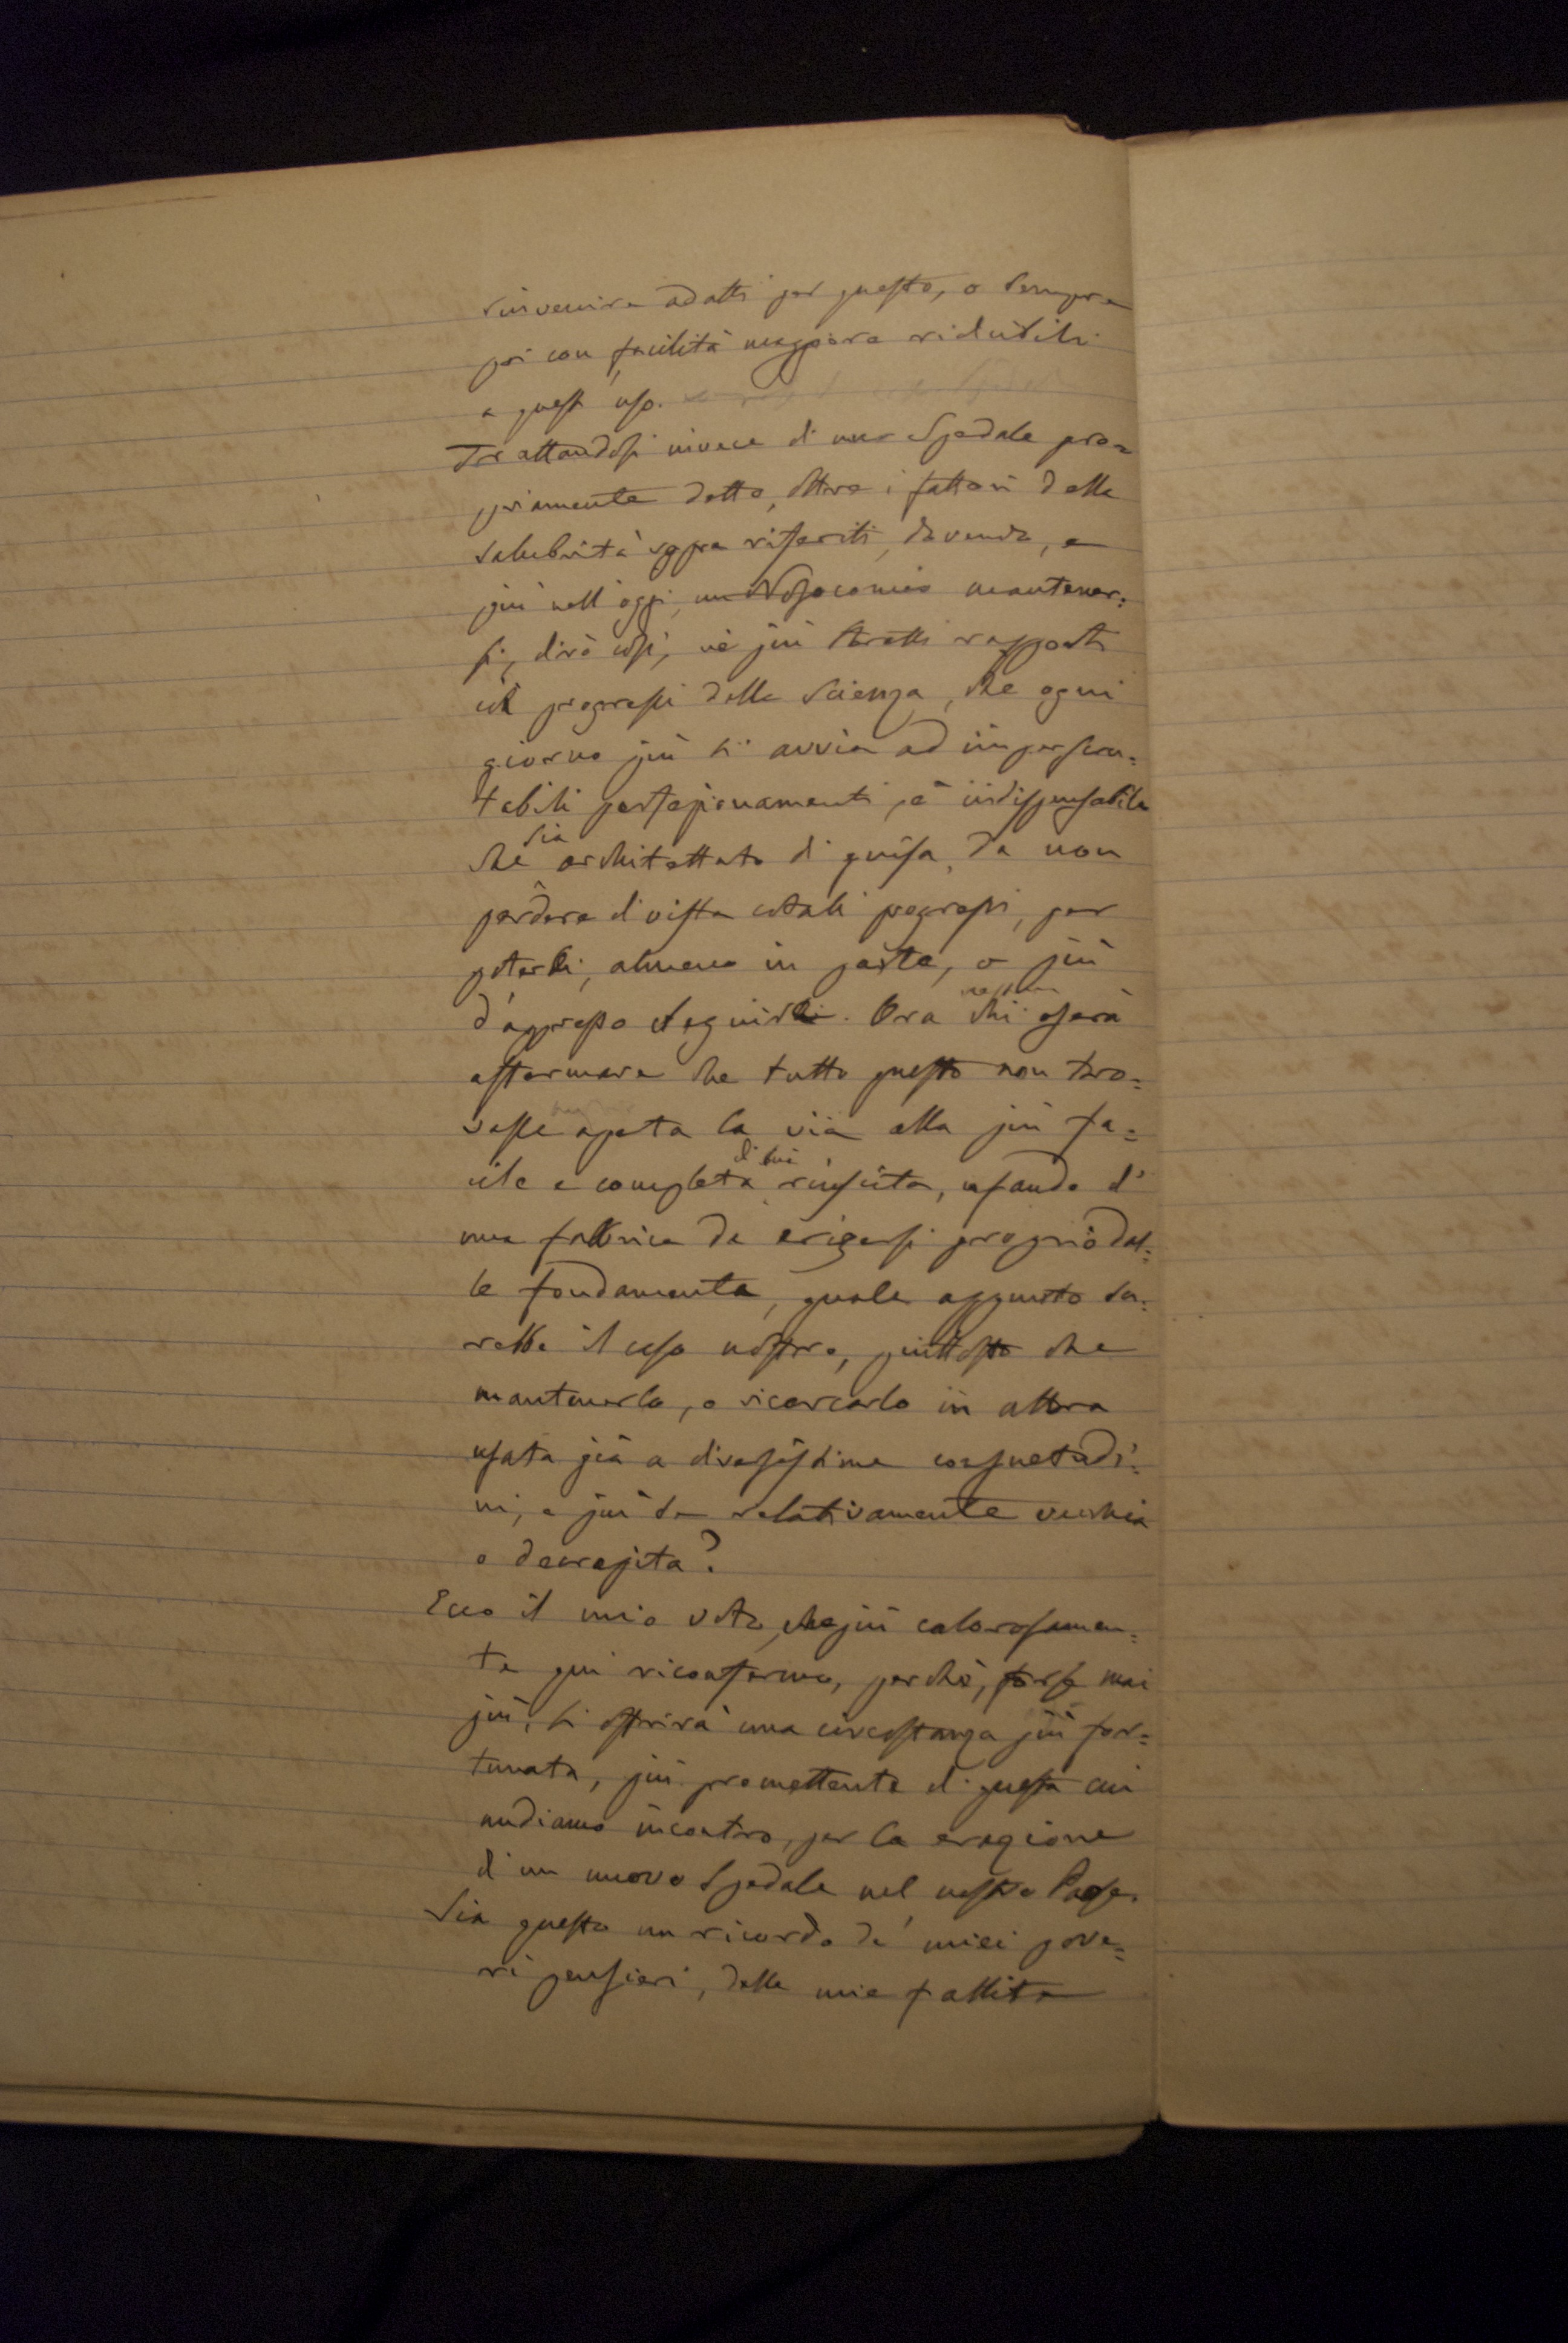 rinvenire adatti per questo, o sempre
poi con facilità neppure riducibili
a quest'uso.
Trattandosi invece di uno Spedale pro=
priamente detto, oltre i fattori della
salubrità sopra riferiti, dovendo, e
più nell'oggi, un Nosocomio mantener=
si, dirò così, ne' più stretti rapporti
coi progressi della Scienza, che ogni
giorno più si avvia ad imperscru=
tabili perfezionamenti, è indispensabile
che sia architettato di guisa, da non
perdere di vista cotali progressi, per
poterli, almeno in parte, o più
d'appresso seguirli. Ora chi oserà
affermare che tutto questo non tro=
vasse aperta la via alla più fa=
cile e completa di lui riuscita, usando d'
una fabbrica da erigersi proprio dal=
le fondamenta, quale appunto sa=
rebbe il caso nostro, piuttosto che
mantenerlo, o ricercarlo in altra
usata già a diversissime consuetudi=
ni, e più se relativamente vecchia
o decrepita?
Ecco il mio voto, che più calorosamen=
te qui riconfermo, perché, forse mai
più, si offrirà una circostanza più for=
tunata, più promettente di questa cui
andiamo incontro, per la erezione
di un nuovo Spedale nel nostro Paese.
Sia questo un ricordo de' miei pove=
ri pensieri, delle mie fallite